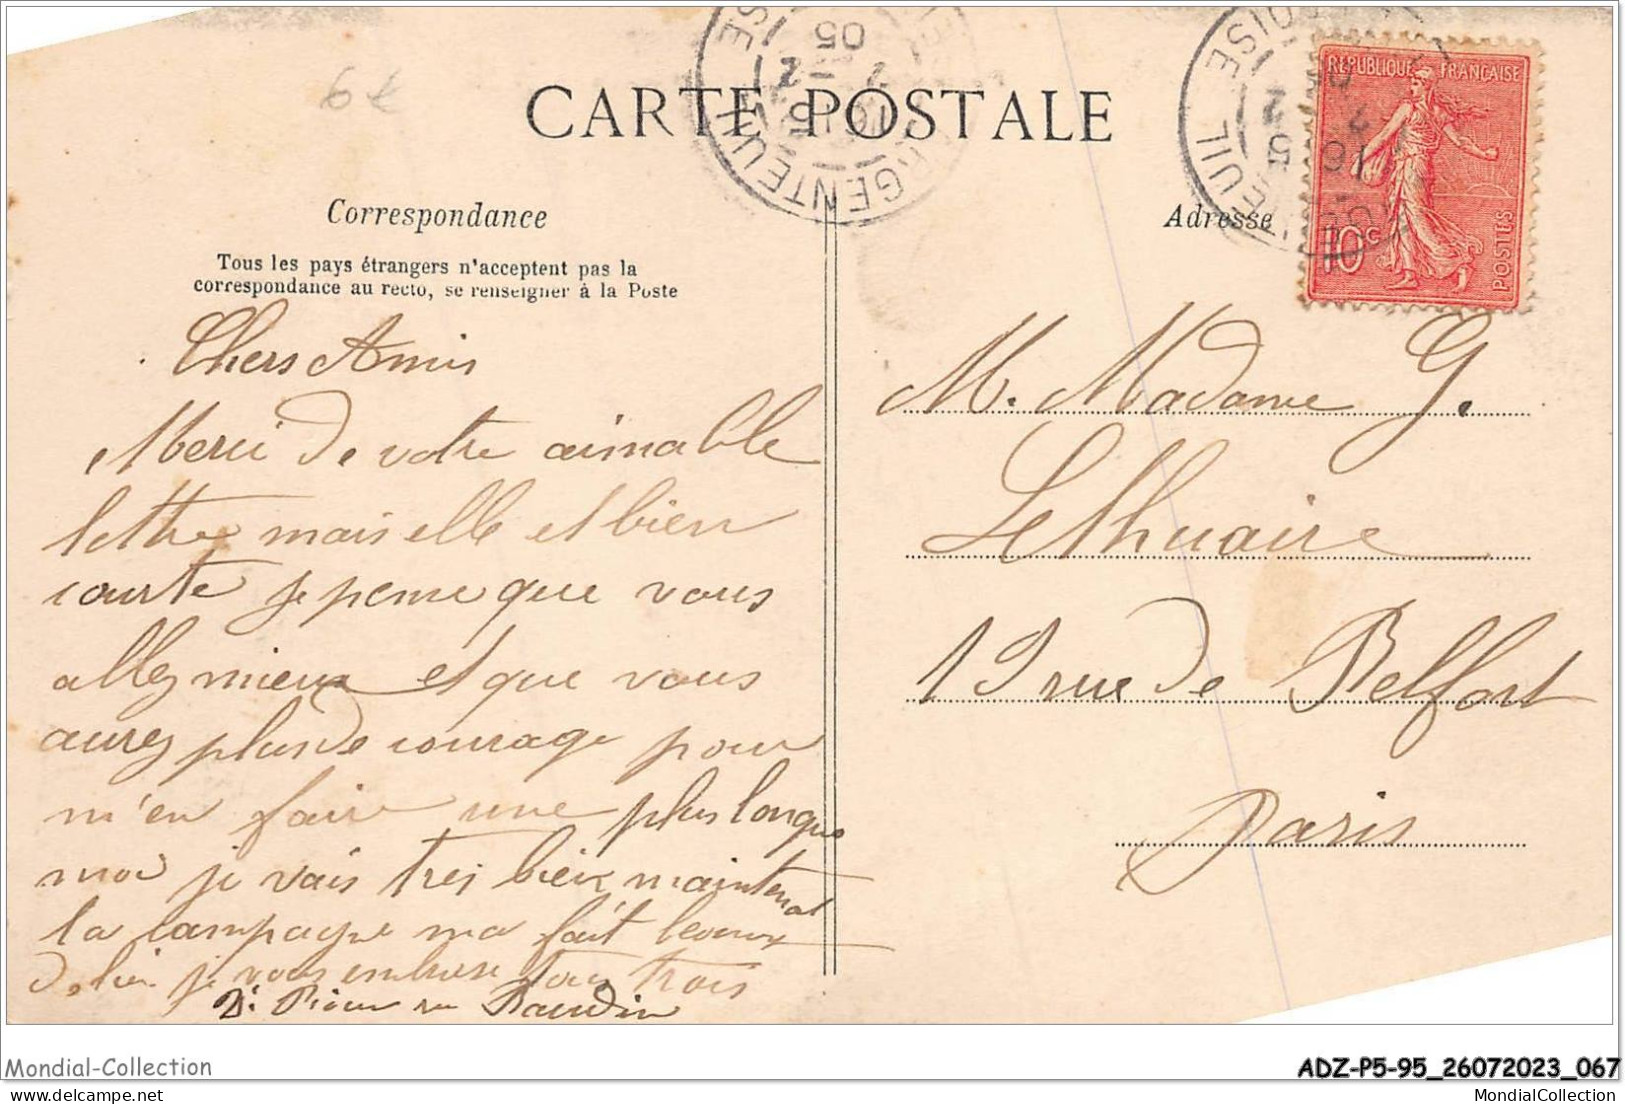 6€
CARTE POSTALE
ARGENTEUIL
OISE
16
5 2
05
Correspondance
Tous les pays étrangers n'acceptent pas la
correspondance au recto, se renseigner à la Poste
Chers Amis
Merci de votre aimable
lettre mais elle et bien
courte je pense que vous
allez mieux et que vous
aurez plus de courage pour
m'en faire une plus longue
moi je vais tres bien maintenat
la campagne ma fait beaucoup
de bien je vous embrasse tous trois
Baudin
Adresse
REPUBLIQUE FRANÇAISE
10 c
POSTES
M. Madame G.
Lethuaire
19 rue de Belfort
Paris
Mondial-Collection
ADZ-P5-95_26072023_067
www.delcampe.net
MondialCollection